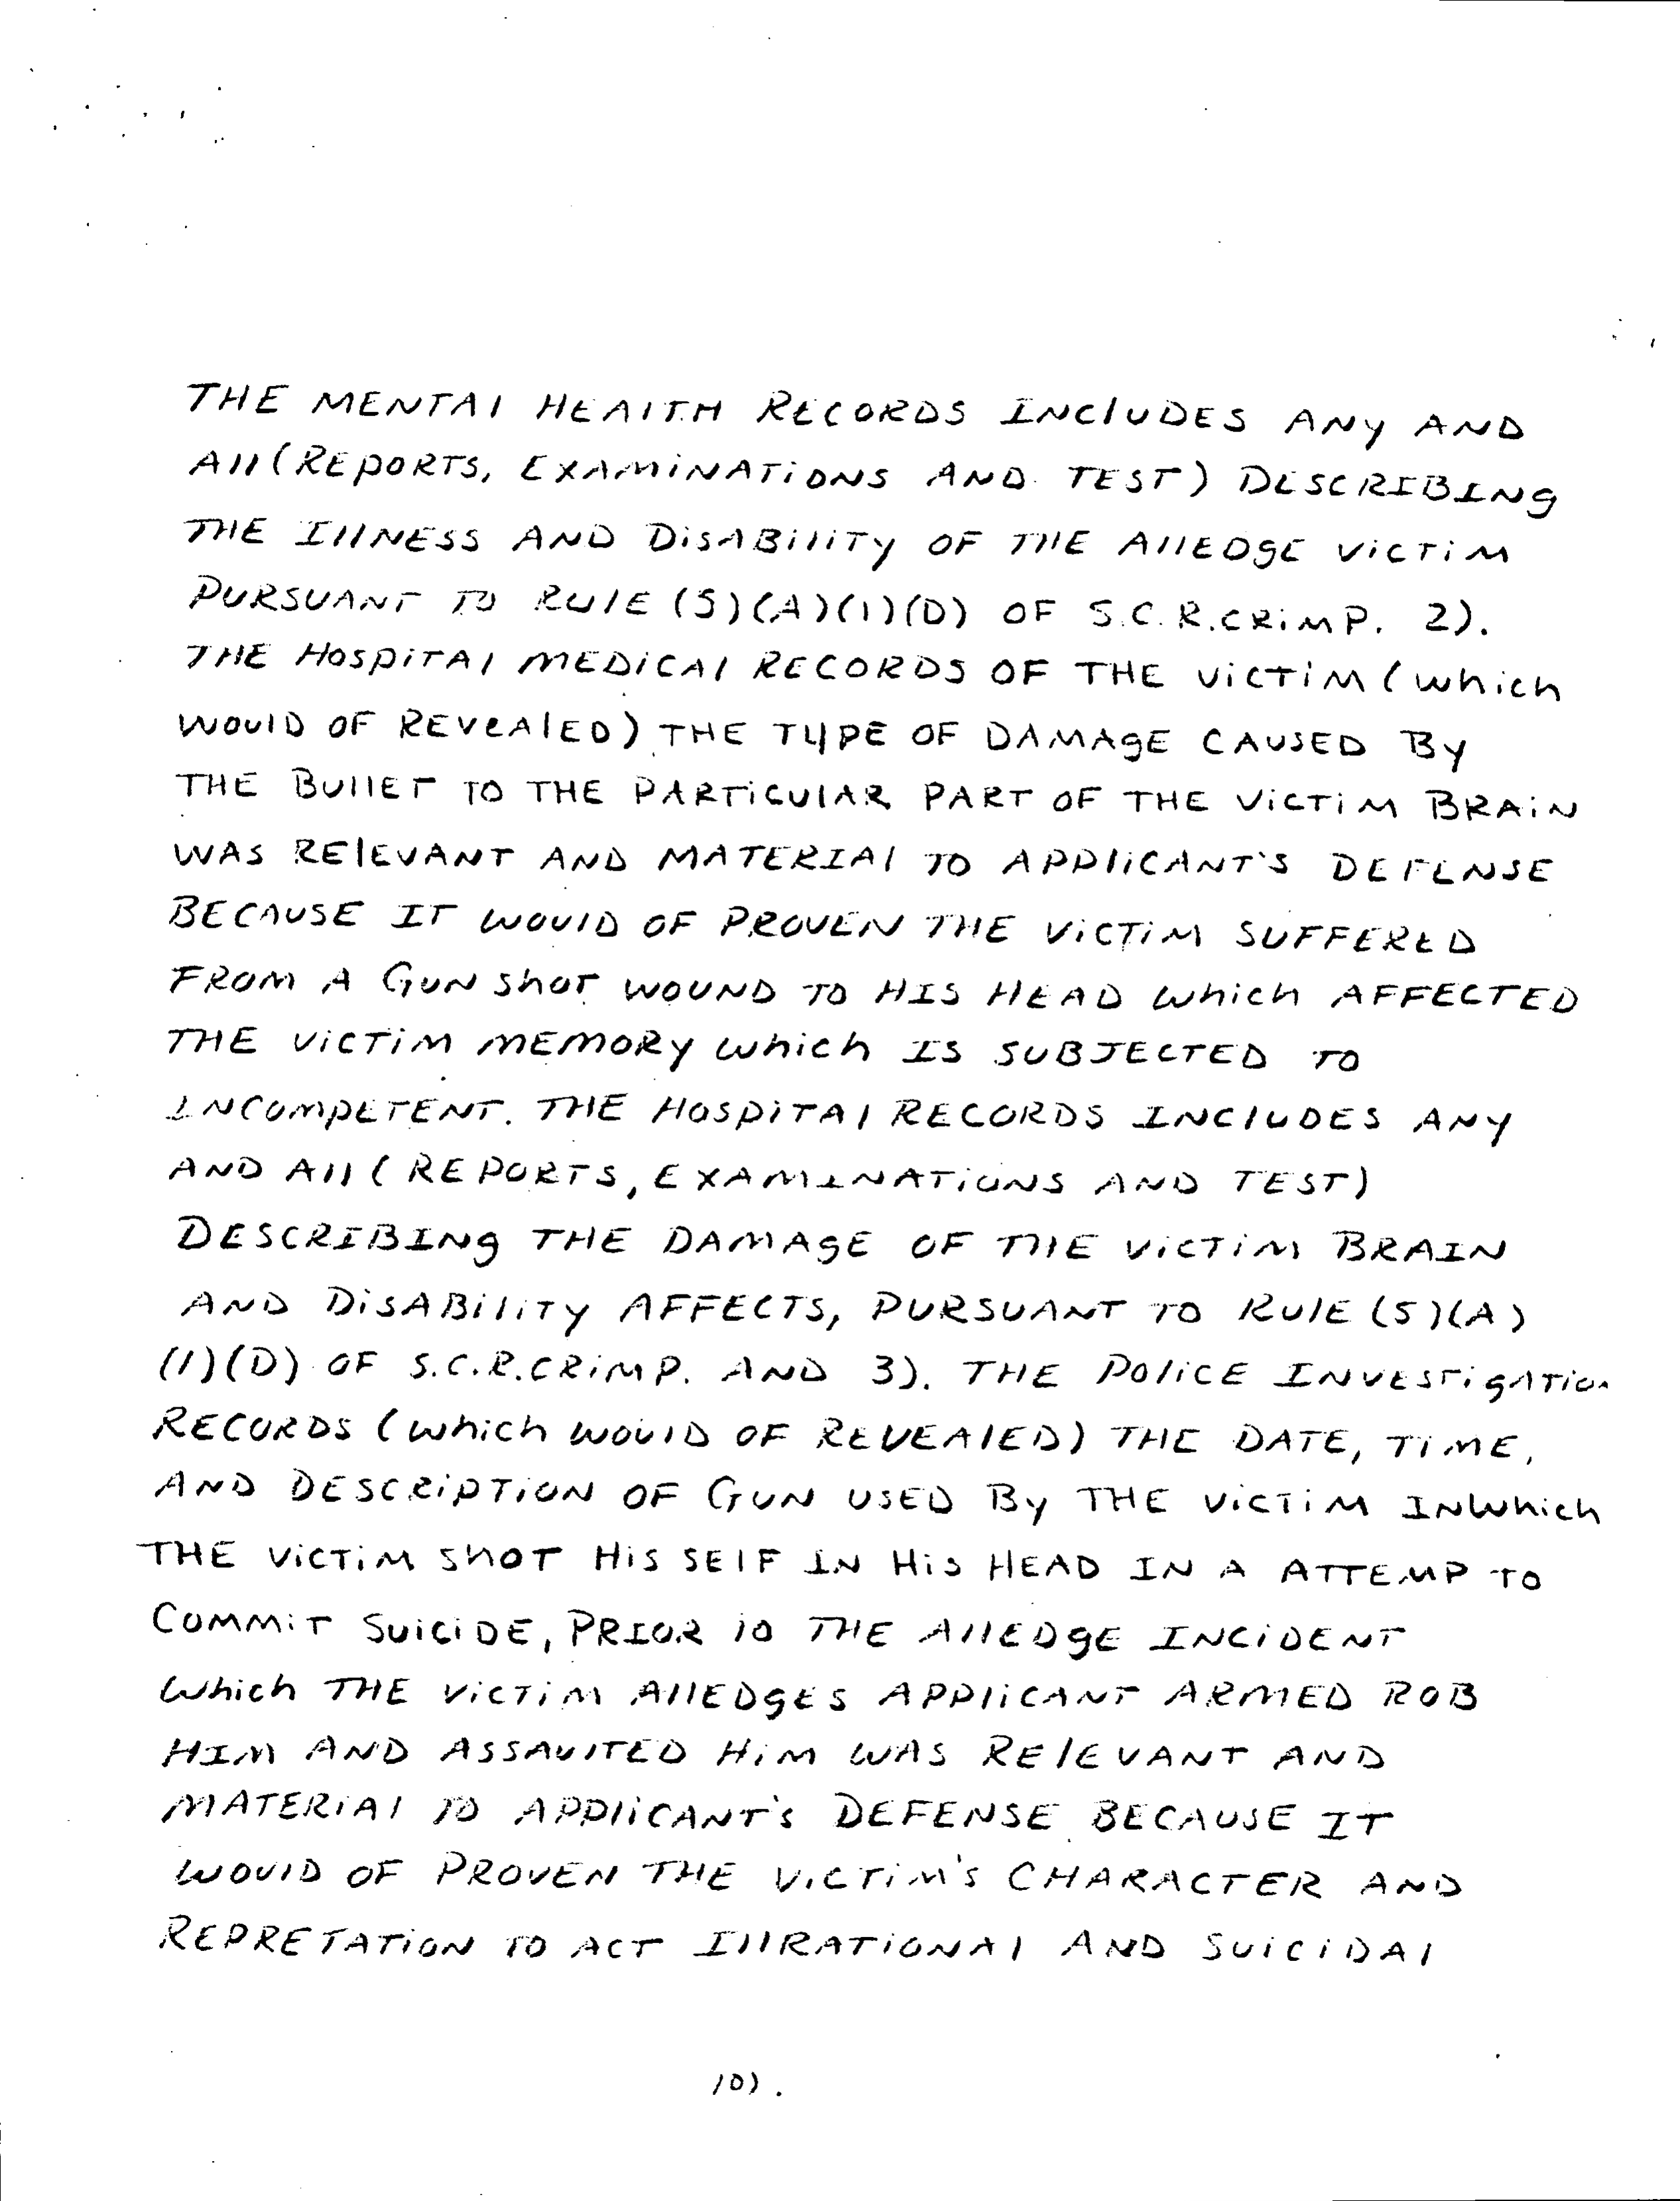 THE MENTAl HEAlTH RECORDS INClUDES ANy AND
All (REpORTS, EXAMiNATiONS AND TEST) DESCRIBING
THE IllNESS AND DiSABiliTy OF THE AllEDgE ViCTiM
PURSUANT TO RUlE (5)(A)(1)(D) OF S.C.R.CRiMP. 2).
THE HOSpiTAl MEDiCAl RECORDS OF THE ViCTiM (which
WOUlD OF REVeAlED) THE TYPE OF DAMAgE CAUSED By
THE BUllET TO THE PARTiCUlAR PART OF THE ViCTiM BRAiN
WAS RElEVANT AND MATERIAl TO APPliCANT'S DEFENSE
BECAUSE IT WOUlD OF PROVEN THE ViCTiM SUFFERED
FROM A GUN ShOT WOUND TO HIS HEAD which AFFECTED
THE ViCTiM MEMORy which IS SUBJECTED TO
INCOMpETENT. THE HOSpiTAl RECORDS INClUDES ANy
AND All (REPORTS, EXAMINATiONS AND TEST)
DESCRIBING THE DAMAgE OF THE ViCTiM BRAIN
AND DiSABiliTy AFFECTS, PURSUANT TO RUlE (5)(A)
(1)(D) OF S.C.R.CRiMP. AND 3). THE POliCE INVESTigATiON
RECORDS (which WOUlD OF REVEAlED) THE DATE, TiME,
AND DESCRipTiON OF GUN USED By THE ViCTiM INWhich
THE ViCTiM ShOT HiS SElF IN HiS HEAD IN A ATTEMP TO
COMMiT SUiCiDE, PRIOR TO THE AllEDgE INCiDENT
which THE ViCTiM AllEDgES APPliCANT ARMED ROB
HIM AND ASSAUlTED HiM WAS RElEVANT AND
MATERiAl TO APPliCANT'S DEFENSE BECAUSE IT
WOUlD OF PROVEN THE ViCTiM'S CHARACTER AND
REPRETATiON TO ACT IllRATiONAl AND SUiCiDAl
10).